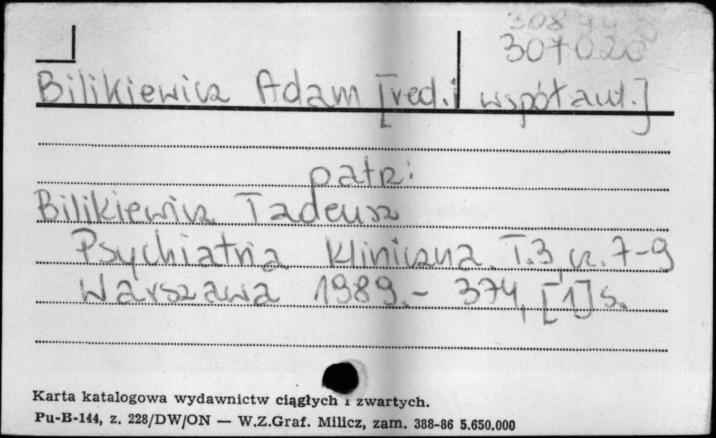 307020
Bilikiewicz Adam [red. i współaut.]
patrz:
Bilikiewicz Tadeusz
Psychiatria kliniczna. T.3, cz. 7-9
Warszawa 1989.- 374, [1] s.
Karta katalogowa wydawnictw ciągłych i zwartych.
Pu-B-144, z. 228/DW/ON — W.Z.Graf. Milicz, zam. 388-86 5.650.000